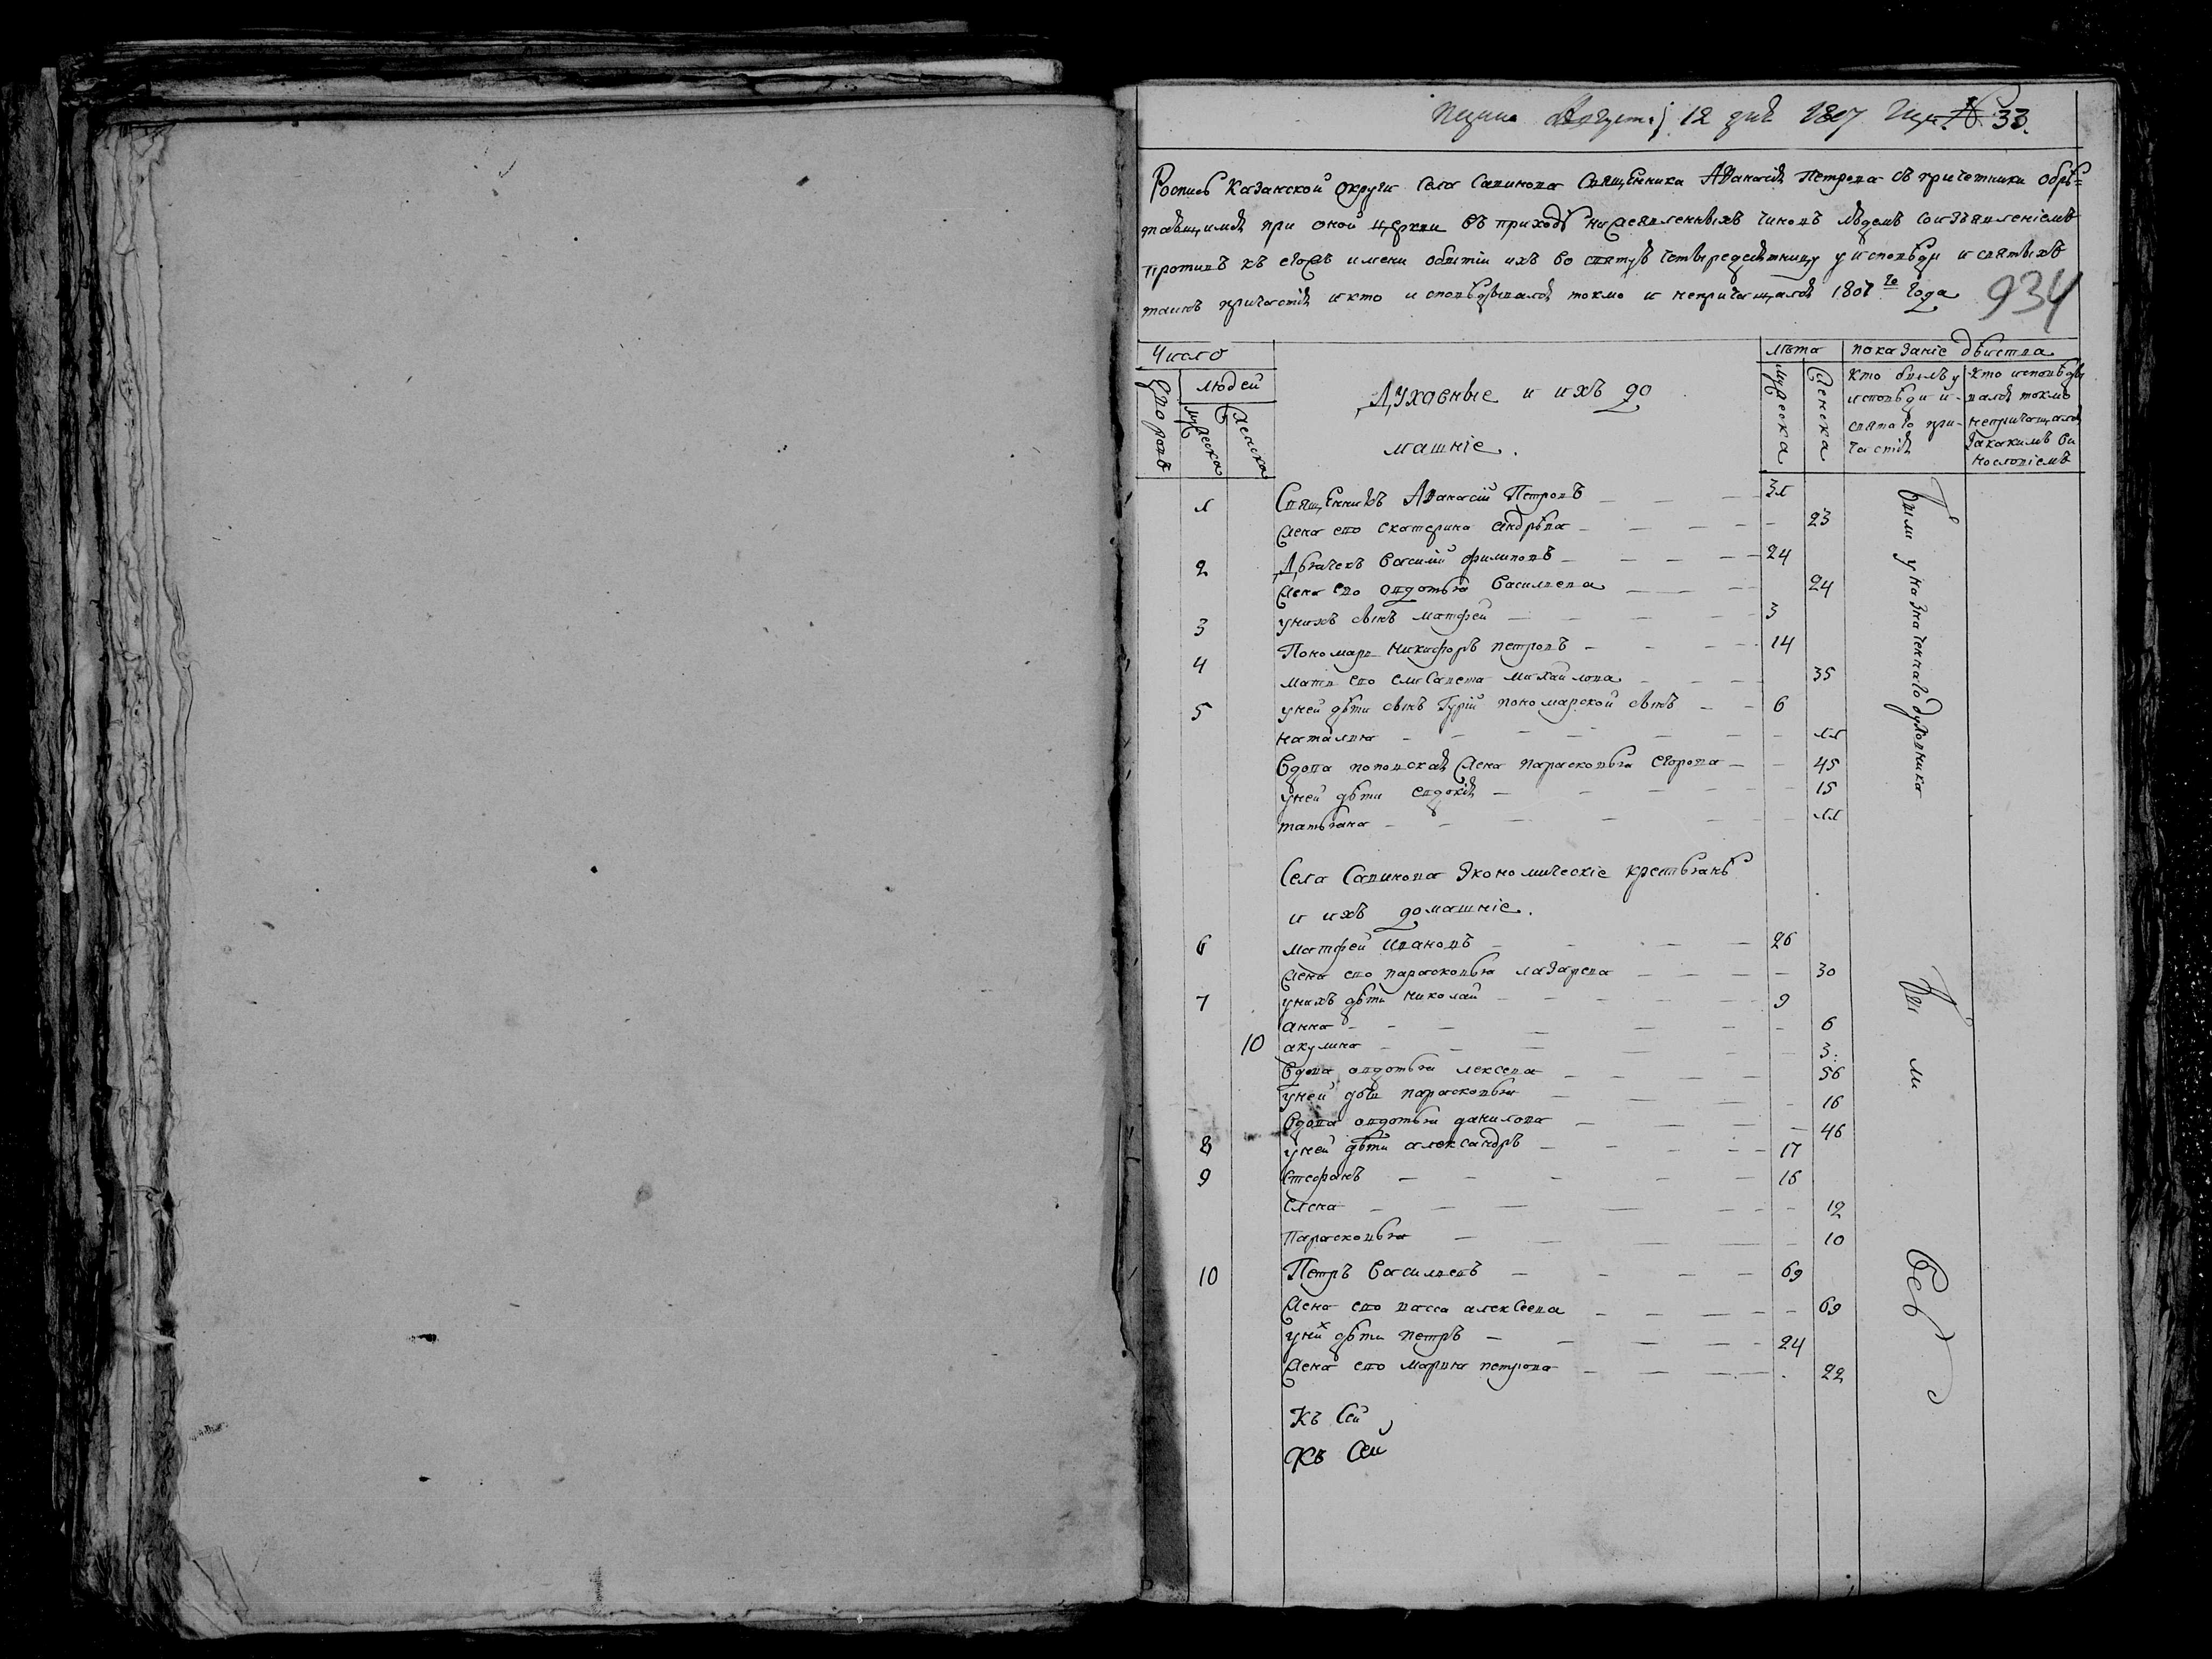 12 дня 1807 № 33.
Роспись Казанской округи села Савинова Священника Аѳанасія Петрова съ причетники обрѣ=
тающимся при оной церкви въ приходѣ нижеявленныхъ чиновъ людемъ соизъявленіемъ
противъ къ егождъ имени обытіи ихъ во святую четыредесятницу у исповѣди и святыхъ
таинъ причастія и кто исповѣдывался токмо и непричащался 1807 го года
934
Число
людей
дворовъ
мужеска
женска
Духовные и ихъ до
машніе.
лѣта
мужеска
женска
показаніе дѣиства
кто былъ у исповѣди и святаго причастія
кто исповѣдывался токмо непричащался
закакимъ винословіемъ
1 Священникъ Аѳанасій Петровъ 31
жена ево екатерина андрѣва 23
2 Дьячекъ Василий филиповъ 24
жена ево овдотья Васильева 24
3 унихъ сынъ матфей 3
4 Пономарь никифоръ петровъ 14
мать ево елисавета михайлова 35
5 уней дѣти сынъ Гурій пономарской сынъ 6
наталья 11
Вдова поповская жена парасковья егорова 45
уней дѣти евдокія 15
татьяна 11
Были у назначеннаго духовника
Села Савинова Экономическіе крестьянѣ
и ихъ домашніе.
6 матфей ивановъ 26
жена ево парасковья лазарева 30
7 унихъ дѣти николай 9
анна 6
10 акулина 3
Вдова овдотья лексева 56
уней дочь парасковья 16
Вдова овдотья данилова 46
8 уней дѣти александръ 17
9 стефанъ 16
Елена 12
Парасковья 10
10 Петръ Васильевъ 69
жена ево васса алексѣева 69
уних дѣти петръ 24
жена ево марья петрова 22
Бы ли
Къ Сей
Къ Сей